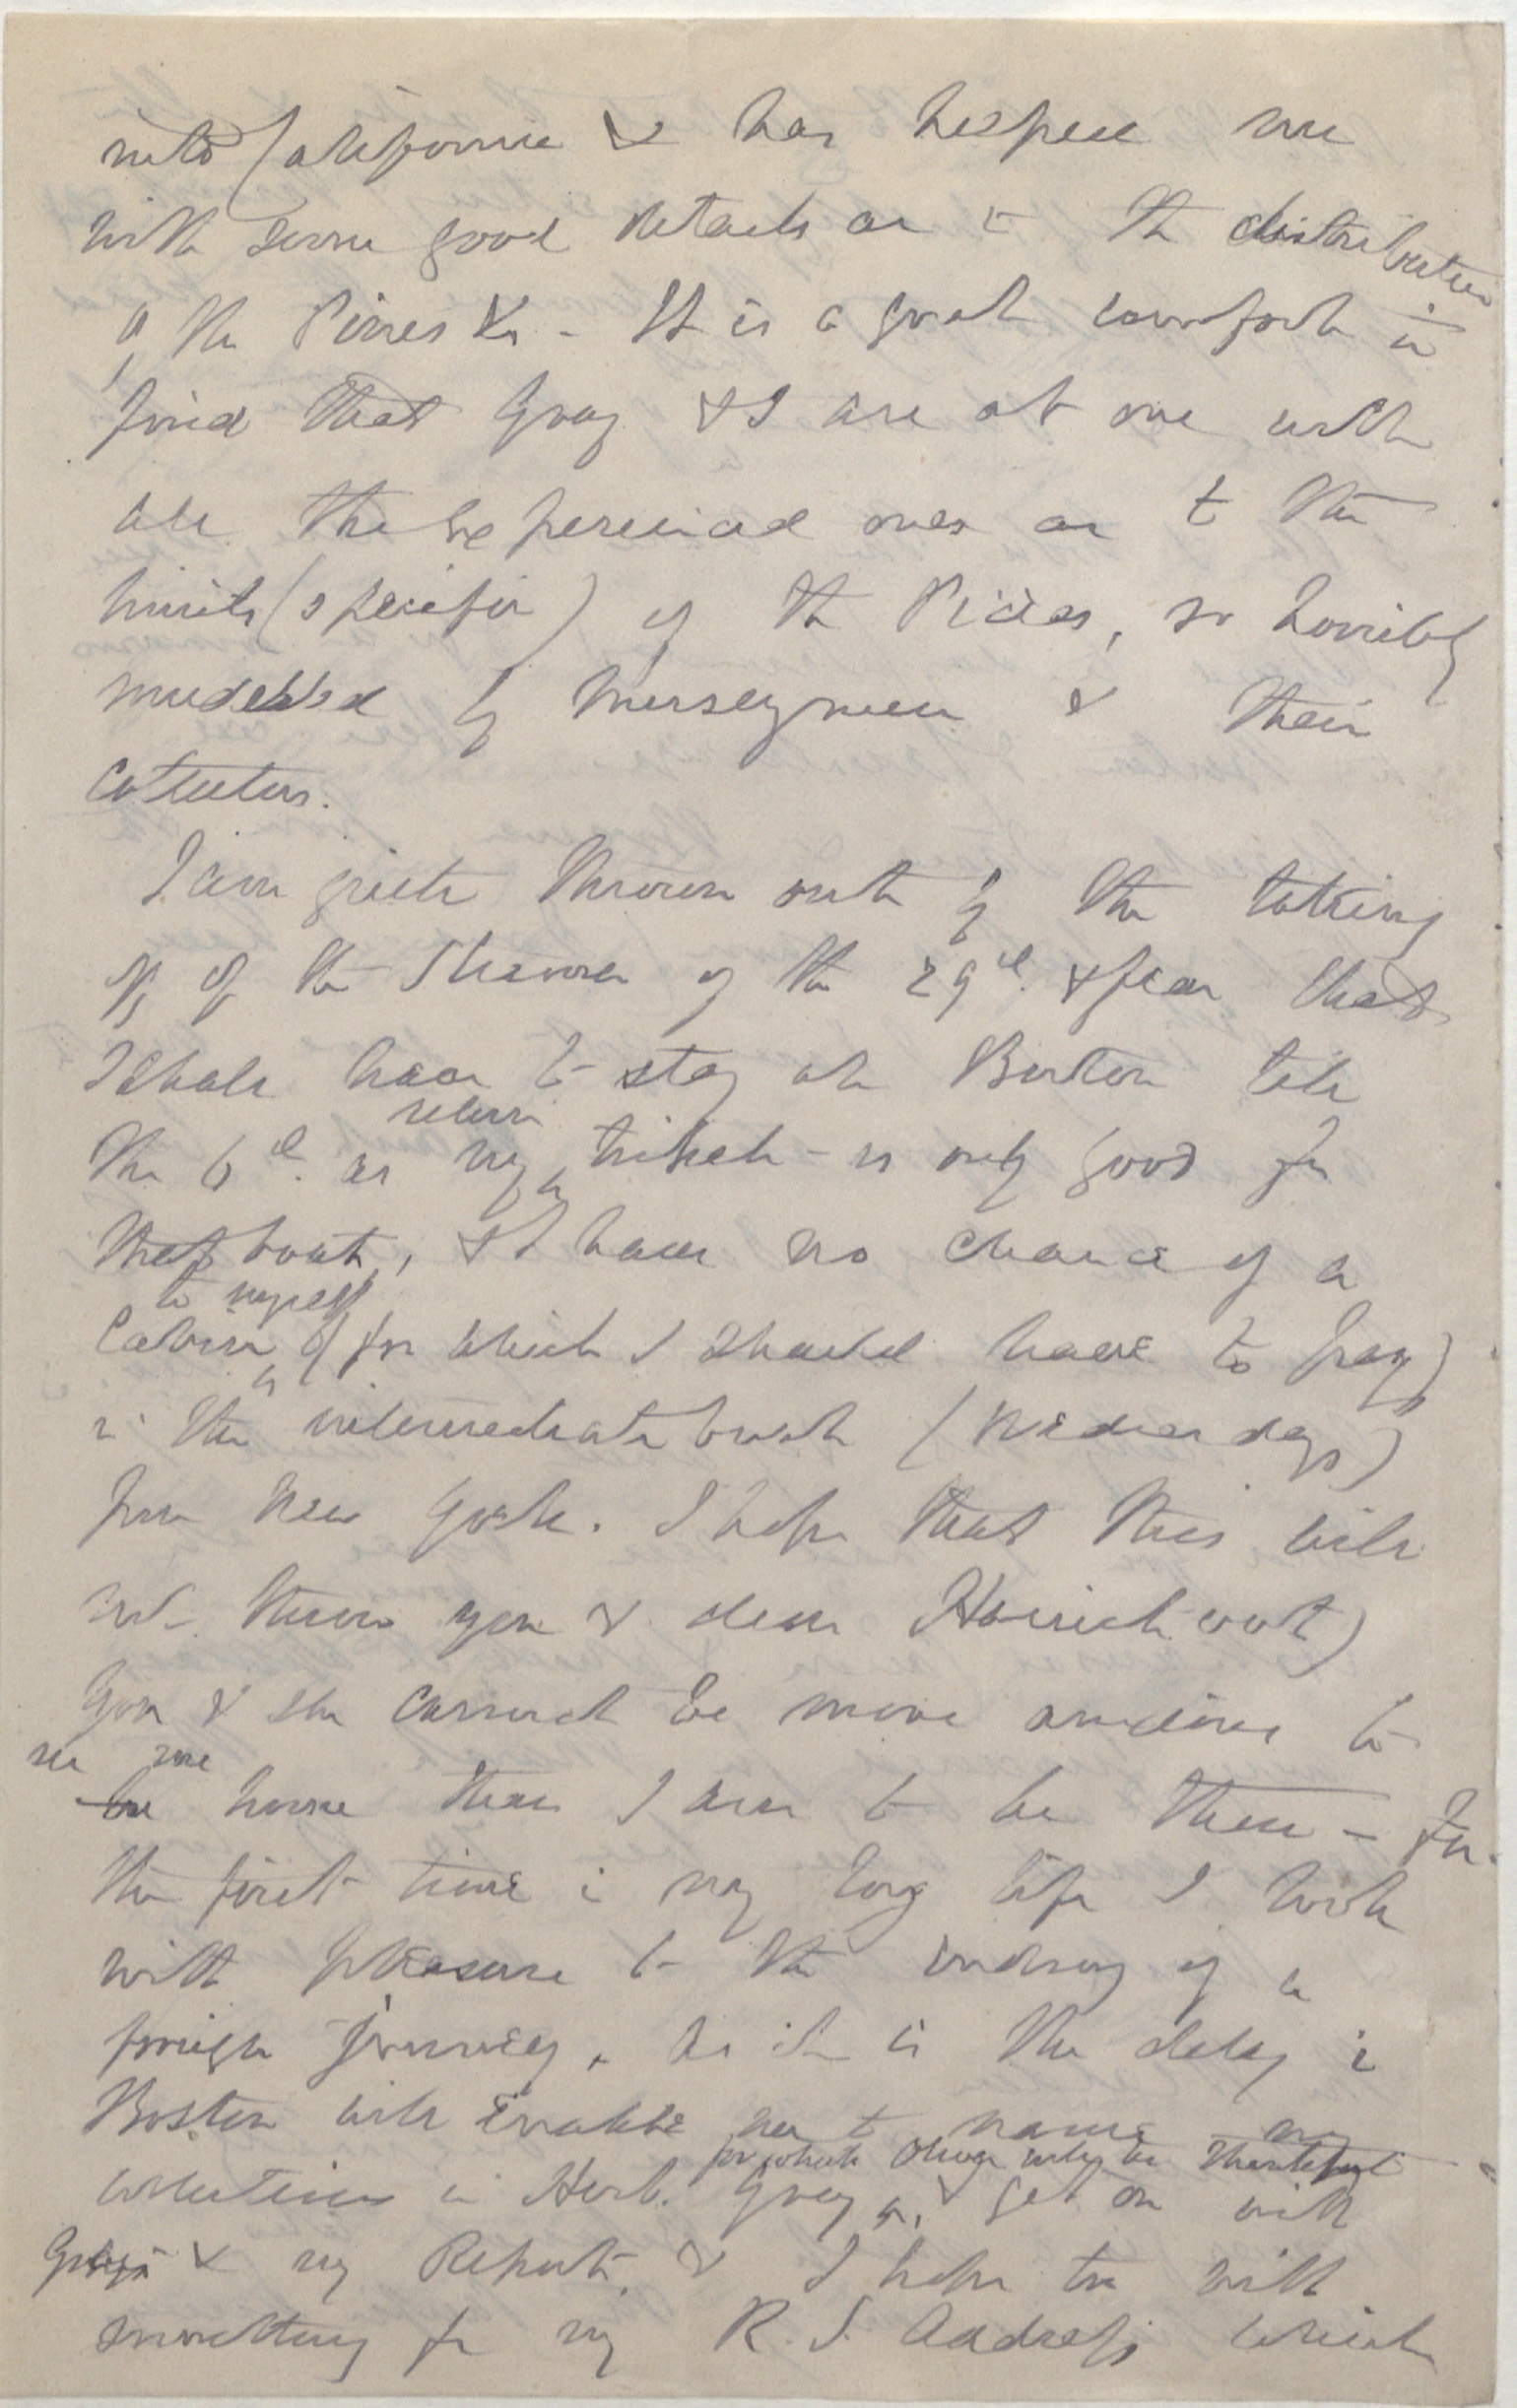 into California & has helped me
with some good details as to the distribution
of the Pines &c - It is a great comfort to
find that Gray & I are at one with
all the experienced ones as to the
limits (specific) of the Picias, so horribly
muddled by nurserymen & their
collectors.
I am quite thrown out by the taking
off of the Steamer of the 29th. & fear that
I shall have to stay at Boston till
the 6th. as my return ticket - is only good for
that boat, & I have no chance of a
Cabin to myself (for which I should have to pay)
in the intermediate boat (Wednesdays)
from New York. I hope that this will
not throw you & dear Harriet out)
You & she cannot be more anxious to
see me home than I am to be there - For
the first time in my long life I look
with pleasure to the ending of a
foreign journey. As it is the delay in
Boston will enable me to name my
collections in Herb. Gray for which they will be thankful, & get on with
Gray's & my Report, & I hope too with
something for my R. S. Address which